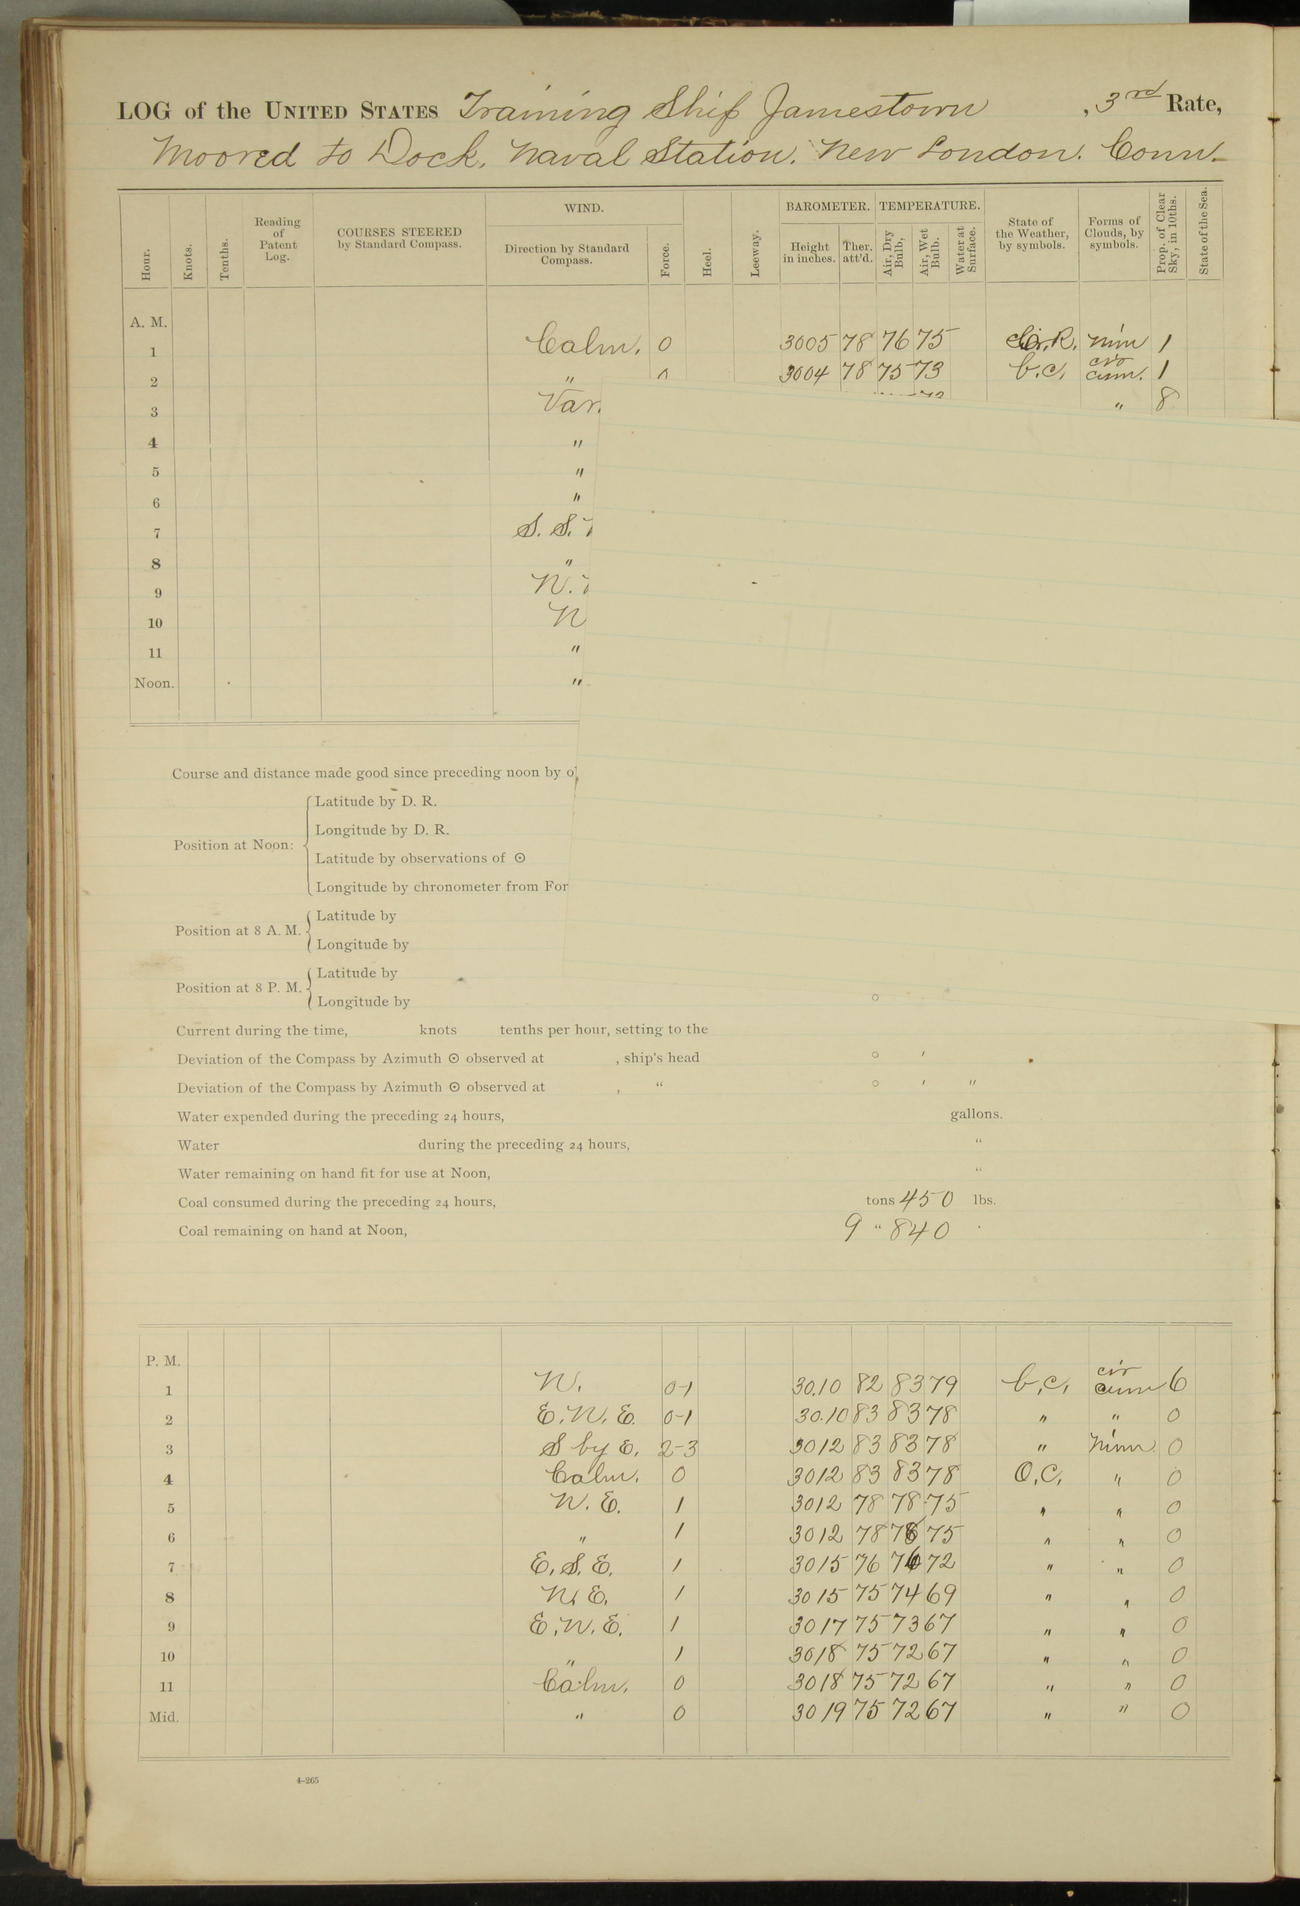 LOG of the UNITED STATES Training Ship Jamestown , 3rd Rate,
Moored to Dock, Naval Station. New London. Conn.
Hour. Knots. Tenths. Reading of Patent Log. COURSES STEERED by Standard Compass. WIND. Direction by Standard Compass. Force. Heel. Leeway. BAROMETER. Height in inches. Ther. att'd. TEMPERATURE. Air, Dry Bulb, Air, Wet Bulb. Water at Surface. State of the Weather, by symbols. Forms of Clouds, by symbols. Prop. of Clear Sky, in 10ths. State of the Sea.
A. M.
1 Calm. 0 3005 78 76 75 nim 1
2 " 3004 78 75 73 b.c. cir cum. 1
3 Var. " 8
4 "
5 "
6 "
7 S. S.
8 "
9 N.
10 N
11 "
Noon. "
Course and distance made good since preceding noon by
Position at Noon:
Latitude by D. R.
Longitude by D. R.
Latitude by observations of ⊙
Longitude by chronometer from For
Position at 8 A. M.
Latitude by
Longitude by
Position at 8 P. M.
Latitude by
Longitude by °
Current during the time, knots tenths per hour, setting to the
Deviation of the Compass by Azimuth ⊙ observed at , ship's head ° ′
Deviation of the Compass by Azimuth ⊙ observed at , “ ° ′ ″
Water expended during the preceding 24 hours, gallons.
Water during the preceding 24 hours, “
Water remaining on hand fit for use at Noon, “
Coal consumed during the preceding 24 hours, tons 450 lbs.
Coal remaining on hand at Noon, 9 “ 840
P. M.
1 N. 0-1 30.10 82 83 79 b.c. cir cum 6
2 E.N.E. 0-1 30.10 83 83 78 " " 0
3 S by E. 2-3 3012 83 83 78 " Nim 0
4 Calm. 0 3012 83 83 78 O.C. " 0
5 N. E. 1 3012 78 78 75 " " 0
6 " 1 3012 78 78 75 " " 0
7 E. S. E. 1 3015 76 76 72 " " 0
8 N. E. 1 3015 75 74 69 " " 0
9 E.N.E. 1 3017 75 73 67 " " 0
10 " 1 3018 75 72 67 " " 0
11 Calm. 0 3018 75 72 67 " " 0
Mid. " 0 3019 75 72 67 " " 0
4–265